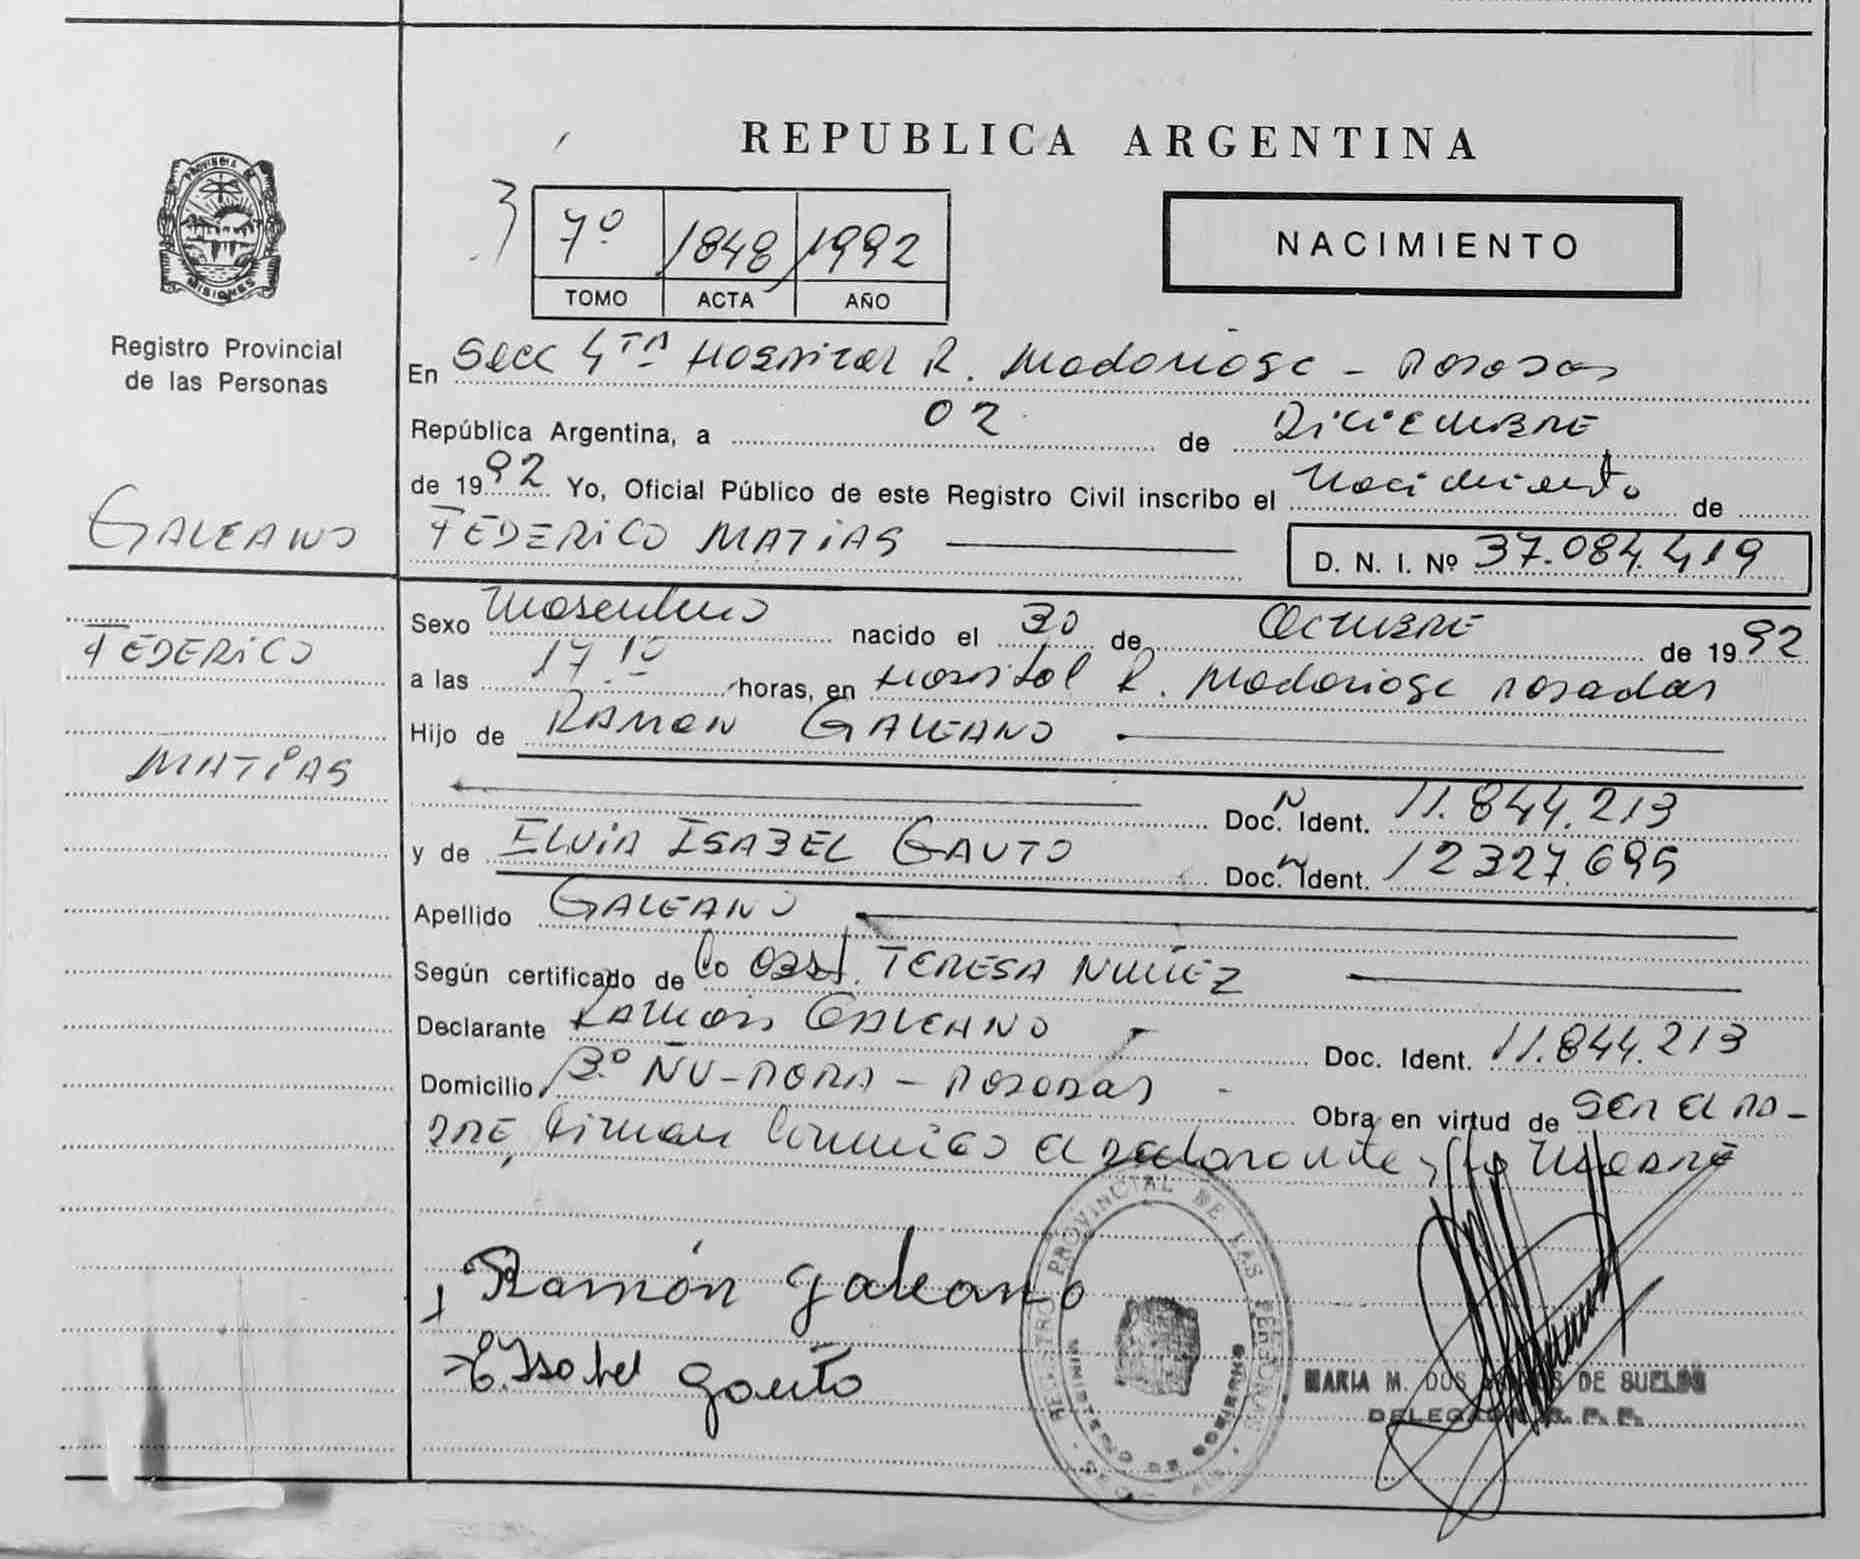 REPUBLICA ARGENTINA
PROVINCIA DE
MISIONES
Registro Provincial
de las Personas
7º 1848 1992
TOMO ACTA AÑO
NACIMIENTO
En Secc 4TA Hospital R. Madariaga - Posadas
República Argentina, a 02 de Diciembre
de 1992 Yo, Oficial Público de este Registro Civil inscribo el Nacimiento de
GALEANO
FEDERICO MATIAS
D. N. I. Nº 37.084.419
Sexo Masculino nacido el 30 de Octubre de 1992
FEDERICO
a las 17 10 horas, en Hospital R. Madariaga Posadas
Hijo de RAMON GALEANO
MATIAS
Doc. Ident. 11.844.213
y de ELVIA ISABEL GAUTO Doc. Ident. 12327.695
Apellido GALEANO
Según certificado de la Obst. TERESA NUÑEZ
Declarante Ramón GALEANO Doc. Ident. 11.844.213
Domicilio Bº ÑU-PORA - POSADAS - Obra en virtud de ser el PA-
DRE, Firman conmigo el declarante y la Madre
Ramón Galeano
E. Isabel Gauto
REGISTRO PROVINCIAL DE LAS PERSONAS
MINISTERIO DE GOBIERNO
MARIA M. DOS DE SUELDO